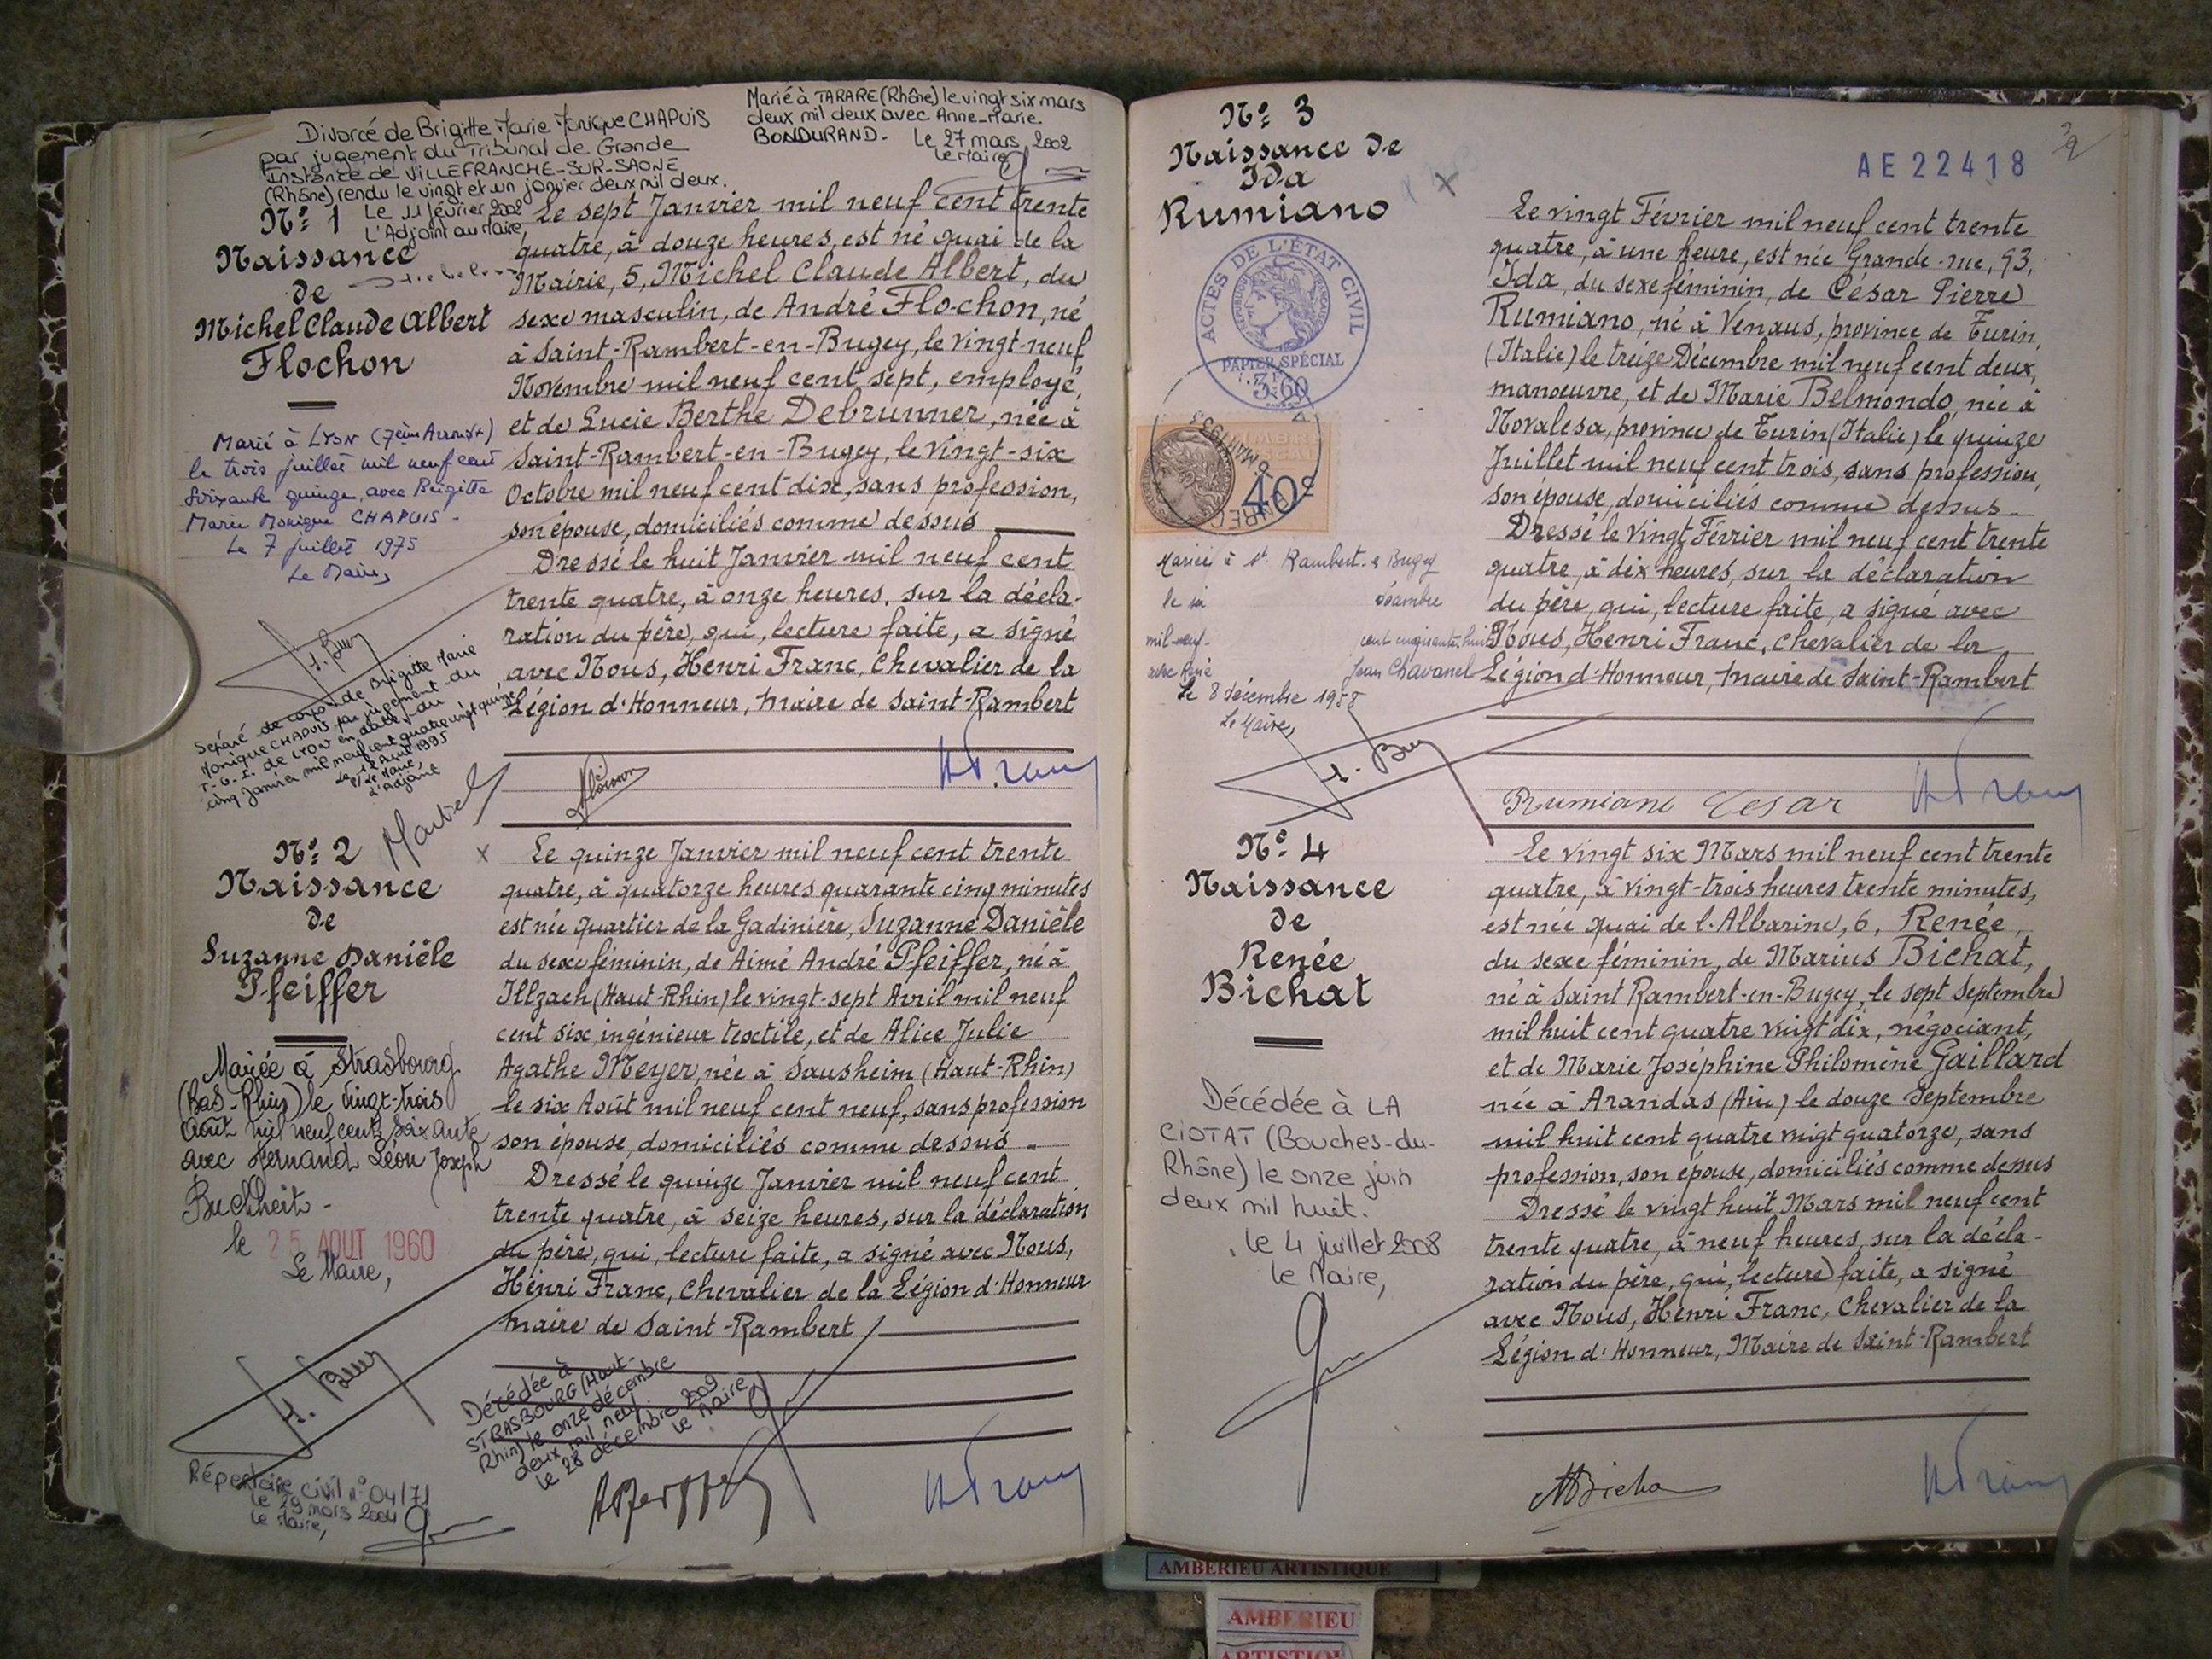 Divorcé de Brigitte Marie Monique CHAPUIS
par jugement du Tribunal de Grande
Instance de VILLEFRANCHE-SUR-SAONE
(Rhône) rendu le vingt et un janvier deux mil deux.
Le 11 février 2002
L'Adjoint au Maire,
Marié à TARARE (Rhône) le vingt six mars
deux mil deux avec Anne-Marie
BONDURAND - Le 27 mars 2002
Le Maire
N°: 1
Naissance
de
Michel Claude Albert
Flochon
Marié à LYON (7ème Arrond+)
le trois juillet mil neuf cent
soixante quinze, avec Brigitte
Marie Monique CHAPUIS -
Le 7 juillet 1975
Le Maire,
Séparé de corps de Brigitte Marie
Monique CHAPUIS par jugement du
T.G.I. de LYON en date du
cinq janvier mil neuf cent quatre vingt quinze
Le 12 Avril 1995
P/ Le Maire,
L'Adjoint
Le sept Janvier mil neuf cent trente
quatre, à douze heures, est né quai de la
Mairie, 5, Michel Claude Albert, du
sexe masculin, de André Flochon, né
à Saint-Rambert-en-Bugey, le vingt-neuf
Novembre mil neuf cent sept, employé,
et de Lucie Berthe Debrunner, née à
Saint-Rambert-en-Bugey, le vingt-six
Octobre mil neuf cent dix, sans profession,
son épouse, domiciliés comme dessus
Dressé le huit Janvier mil neuf cent
trente quatre, à onze heures, sur la décla-
ration du père, qui, lecture faite, a signé
avec Nous, Henri Franc, Chevalier de la
Légion d'Honneur, Maire de Saint-Rambert
Flochon
H Franc
N°: 2
Naissance
de
Suzanne Danièle
Pfeiffer
Mariée à Strasbourg
(Bas-Rhin) le vingt-trois
Août mil neuf cent soixante
avec Fernand Léon Joseph
Buchheit -
le 25 AOUT 1960
Le Maire,
Répertoire civil n° 04/71
le 29 mars 2004
Le Maire,
x Le quinze Janvier mil neuf cent trente
quatre, à quatorze heures quarante cinq minutes
est née quartier de la Gadinière, Suzanne Danièle
du sexe féminin, de Aimé André Pfeiffer, né à
Illzach (Haut-Rhin) le vingt-sept Avril mil neuf
cent six, ingénieur textile, et de Alice Julie
Agathe Meyer, née à Sausheim (Haut-Rhin)
le six Août mil neuf cent neuf, sans profession
son épouse, domiciliés comme dessus -
Dressé le quinze Janvier mil neuf cent
trente quatre, à seize heures, sur la déclaration
du père, qui, lecture faite, a signé avec Nous,
Henri Franc, Chevalier de la Légion d'Honneur
Maire de Saint-Rambert
Décédée à
STRASBOURG (Haut-
Rhin) le onze décembre
deux mil neuf.
le 28 décembre 2009
Le Maire
H Franc
N°: 3
Naissance de
Ida
Rumiano
ACTES DE L'ÉTAT CIVIL
PAPIER SPÉCIAL
3:60
40c
Mariée à St Rambert-e Bugey
le six décembre
mil-neuf-cent cinquante huit
avec René Jean Chavanel
Le 8 décembre 1958
Le Maire,
AE 22418
2
Le vingt Février mil neuf cent trente
quatre, à une heure, est née Grande-rue, 93,
Ida, du sexe féminin, de César Pierre
Rumiano, né à Venaus, province de Turin,
(Italie) le treize Décembre mil neuf cent deux,
manœuvre, et de Marie Belmondo, née à
Novalesa, province de Turin (Italie) le quinze
Juillet mil neuf cent trois, sans profession,
son épouse, domiciliés comme dessus -
Dressé le vingt Février mil neuf cent trente
quatre, à dix heures, sur la déclaration
du père, qui, lecture faite, a signé avec
Nous, Henri Franc, Chevalier de la
Légion d'Honneur, Maire de Saint-Rambert
Rumiano Cesar
H Franc
N°: 4
Naissance
de
Renée
Bichat
Décédée à LA
CIOTAT (Bouches-du-
Rhône) le onze juin
deux mil huit.
le 4 juillet 2008
Le Maire,
Le vingt six Mars mil neuf cent trente
quatre, à vingt-trois heures trente minutes,
est née quai de l'Albarine, 6, Renée,
du sexe féminin, de Marius Bichat,
né à Saint Rambert-en-Bugey, le sept Septembre
mil huit cent quatre vingt dix, négociant,
et de Marie Joséphine Philomène Gaillard
née à Arandas (Ain) le douze Septembre
mil huit cent quatre vingt quatorze, sans
profession, son épouse, domiciliés comme dessus
Dressé le vingt huit Mars mil neuf cent
trente quatre, à neuf heures, sur la décla-
ration du père, qui, lecture faite, a signé
avec Nous, Henri Franc, Chevalier de la
Légion d'Honneur, Maire de Saint-Rambert
H Franc
AMBERIEU ARTISTIQUE
AMBERIEU
ARTISTIQU